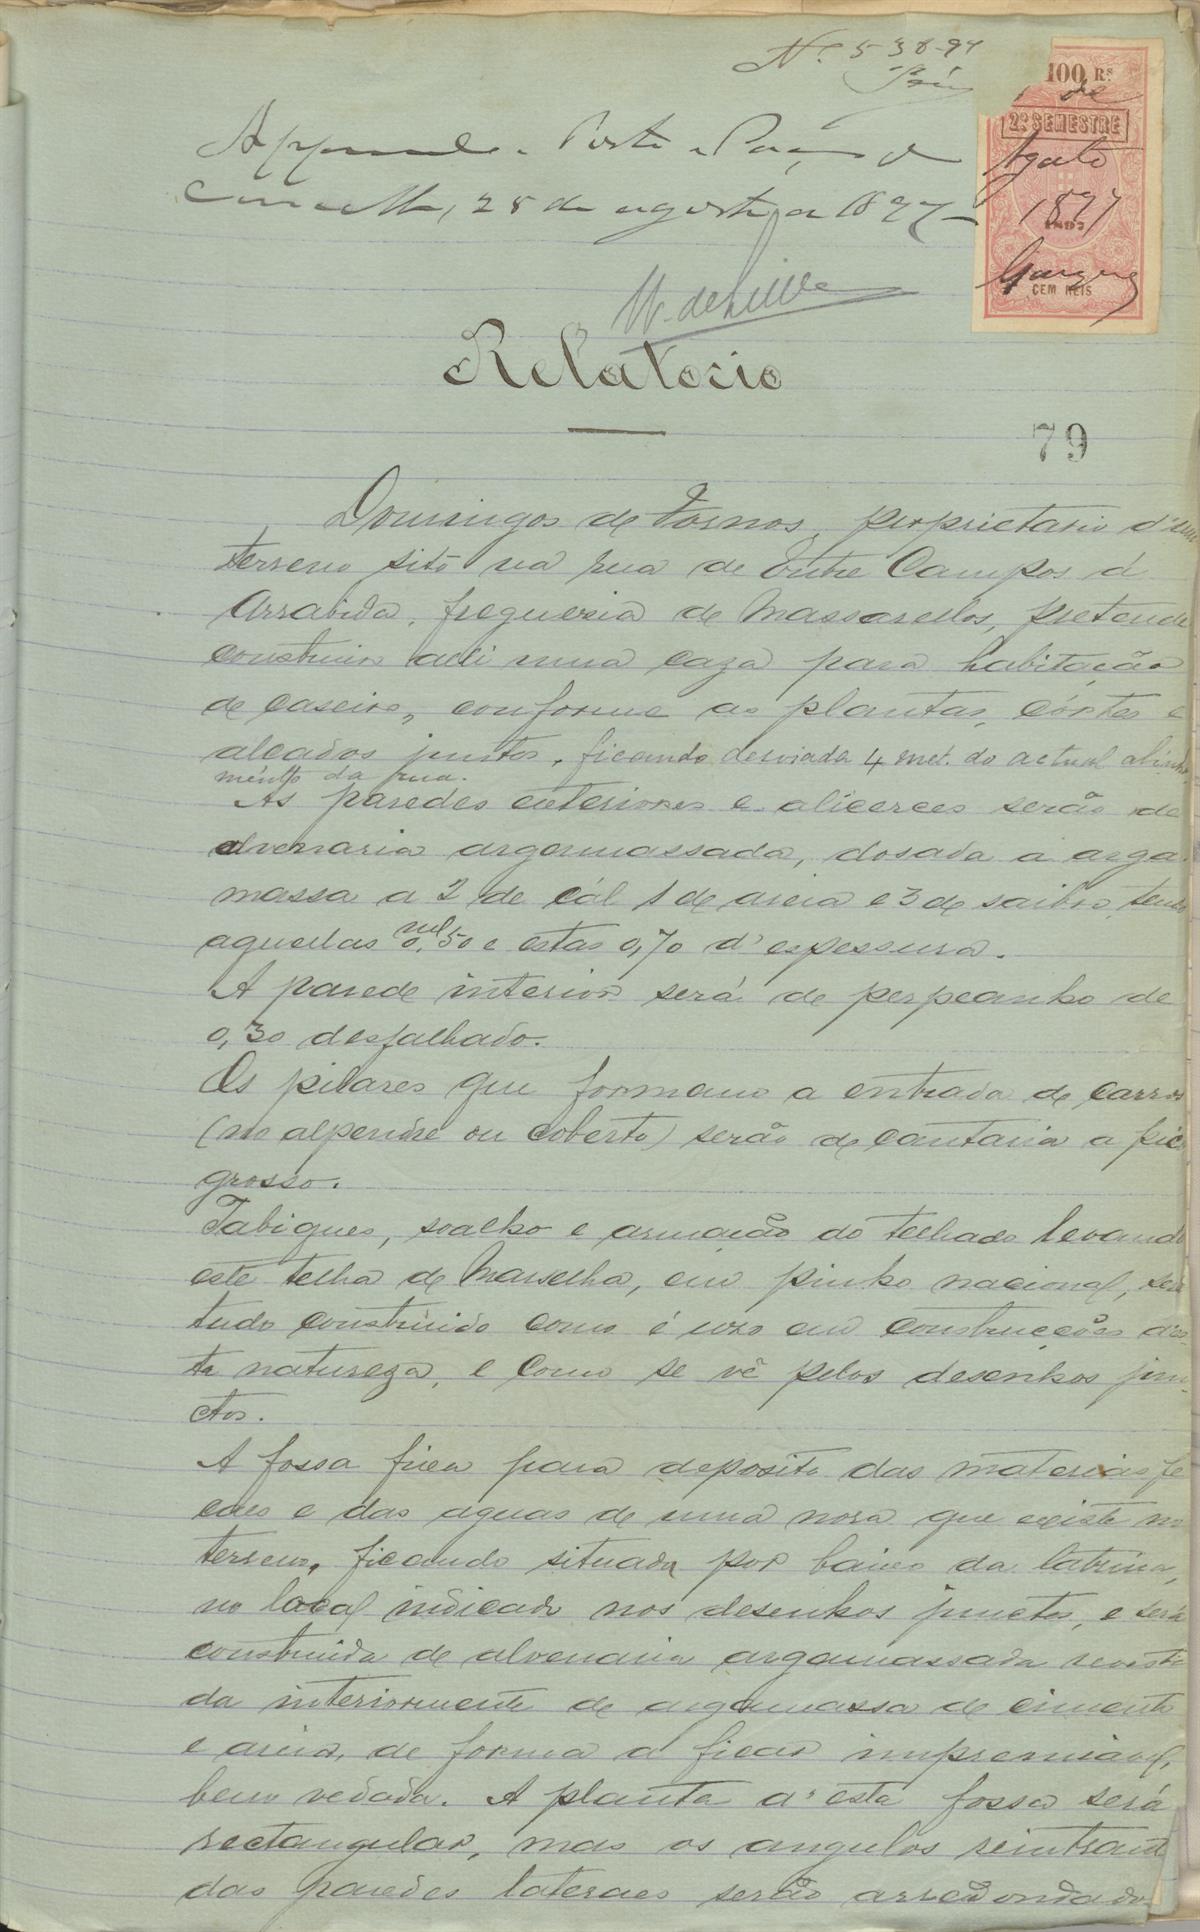 Nº 538-97
100 Rs
de
2º SEMESTRE
Approvado. Porto e Paços do
Agosto
Concelho, 28 de agosto de 1897
1897
CEM REIS
Relatorio
79
Domingos de Fornos, perprietario d'um
terreno sito na rua de Entre Campos á
Arrabida, freguezia de Massarellos, pretende
construir alli uma caza para habitação
de caseiro, conforme as plantas, córtes e
alçados juntos, ficando desviada 4 met. do actual alinha
mento da rua.
As paredes exteriores e alicerces serão de
alvenaria argamassada, dosada a arga
massa a 2 de cál 1 de areia e 3 de saibro, tendo
aquellas 0,50 e estas 0,70 d'espessura.
A parede interior será de perpeanho de
0,30 desfalhado.
Os pilares que formam a entrada de carros
(no alpendre ou coberto) serão de cantaria a pico
grosso.
Tabiques, soalho e armação do telhado levando
este telha de Marselha, em pinho nacional, será
tudo construido como é uzo em construcções d'es-
ta natureza, e como se vê pelos desenhos jun-
ctos.
A fossa fica para deposito das materias fe
caes e das aguas de uma nora que existe no
terreno, ficando situada por baixo da latrina,
no local indicado nos desenhos junctos, e será
construida de alvenaria argamassada revesti
da interiormente de argamassa de cimento
e areia, de forma a ficar impremiavel,
bem vedada. A planta d'esta fossa será
rectangular, mas os angulos reintrant
das paredes lateraes serão arredondados